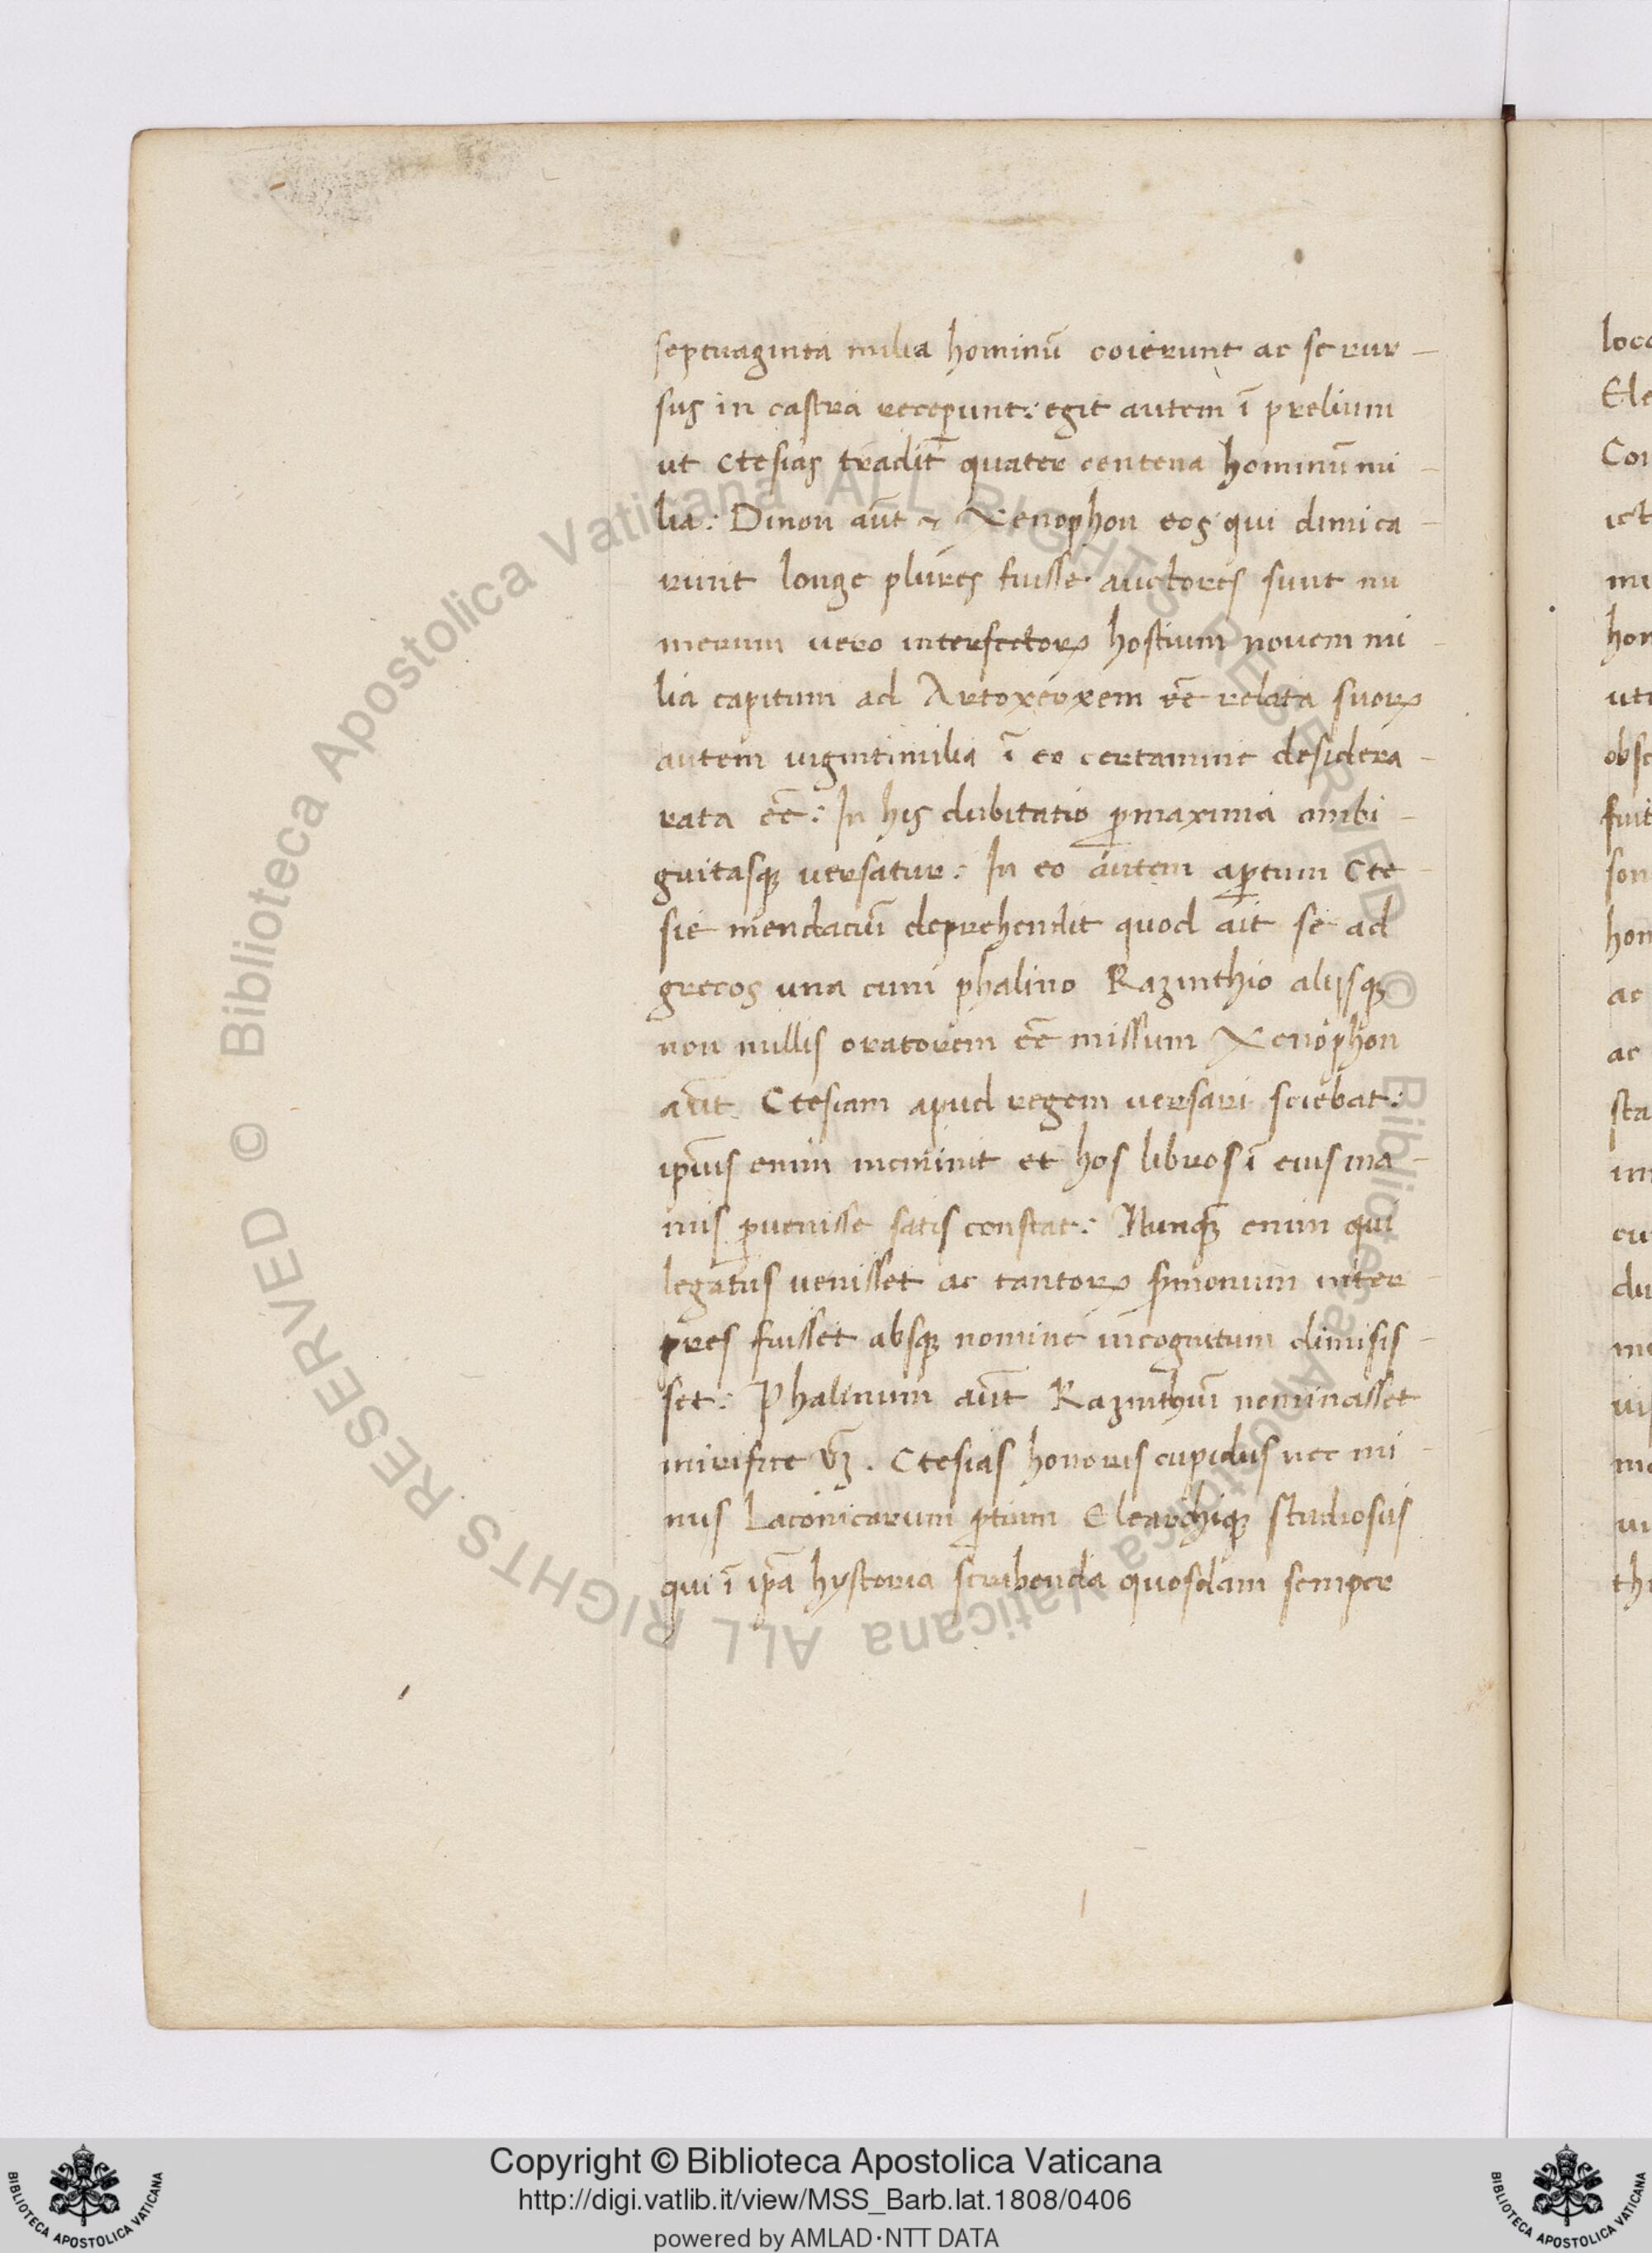 septuaginta milia hominū coierunt ac se rur-
sus in castra recepunt: egit autem ī prelium
ut Ctesias tradit quater centena hominū mi-
lia: Dinon aūt & Xenophon eos qui dimica-
runt longe plures fuisse auctores sunt nu
merum vero interfectoꝝ hostium novem mi-
lia capitum ad Artoxerxem eē relata suoꝝ
autem viginti milia ī eo certamine desidera-
rata eē: In his dubitatio ꝑmaxima ambi-
guitasqꝫ versatur: In eo autem aꝑtum Cte-
sie mendaciū deprehendit quod ait se ad
grecos una cum phalino Kazinthio alijsqꝫ
non nullis oratorem eē missum Xenophon
aūt Ctesiam apud regem versari sciebat:
ip̄ius enim meminit et hos libros ī eius ma-
nus ꝑvenisse satis constat: Nunqꝫ enim qui
legatus venisset ac tantoꝝ s̄monum inter-
pres fuisset absqꝫ nomine incognitum dimisis-
set: Phalinum aūt Kazinthiū nominasset
mirifice vꝫ. Ctesias honoris cupidus nec mi-
nus Laconicarum ꝑtium Clearchiqꝫ studiosus
qui ī ip̄a hystoria scribenda quosdam semper
loca
Ele
Con
ict
mi
hom
utr
obsc
fuit
son
hom
ac
ac
sta
im
cu
du
me
vis
me
vi
thi
© Biblioteca Apostolica Vaticana ALL RIGHTS RESERVED © Biblioteca Apostolica Vaticana ALL RIGHTS RESERVED
Copyright © Biblioteca Apostolica Vaticana
http://digi.vatlib.it/view/MSS_Barb.lat.1808/0406
powered by AMLAD·NTT DATA
BIBLIOTECA APOSTOLICA VATICANA
BIBLIOTECA APOSTOLICA VATICANA